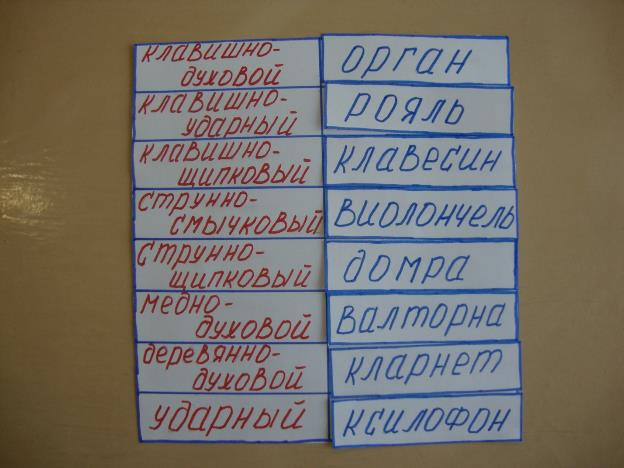 клавишно-
духовой
орган
клавишно-
ударный
рояль
клавишно-
щипковый
клавесин
струнно-
смычковый
виолончель
струнно-
щипковый
домра
медно-
духовой
валторна
деревянно-
духовой
кларнет
ударный
ксилофон